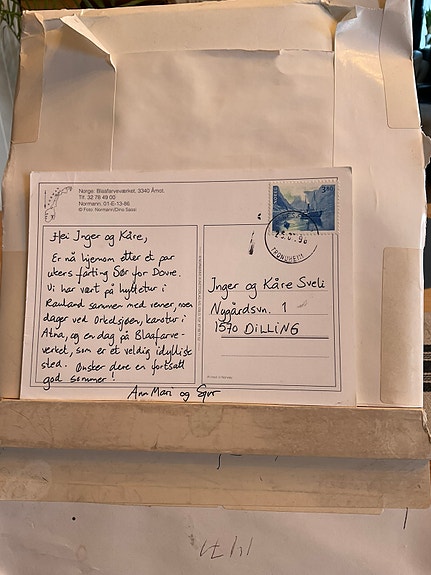 Norge: Blaafarveværket, 3340 Åmot.
Tlf. 32 78 49 00
Normann, 01-E-13-86
© Foto: Normann/Dino Sassi
Hei Inger og Kåre,
Er nå hjemom etter et par
ukers farting Sør for Dovre.
Vi har vært på hyttetur i
Rauland sammen med venner, noen
dager ved Orkdsjøen, kanotur i
Atna, og en dag på Blaafarve-
verket, som er et veldig idyllisk
sted. Ønsker dere en fortsatt
god sommer!
Ann Mari og
TRONDHEIM
Inger og Kåre Sveli
Nygårdsvn. 1
1570 DILLING